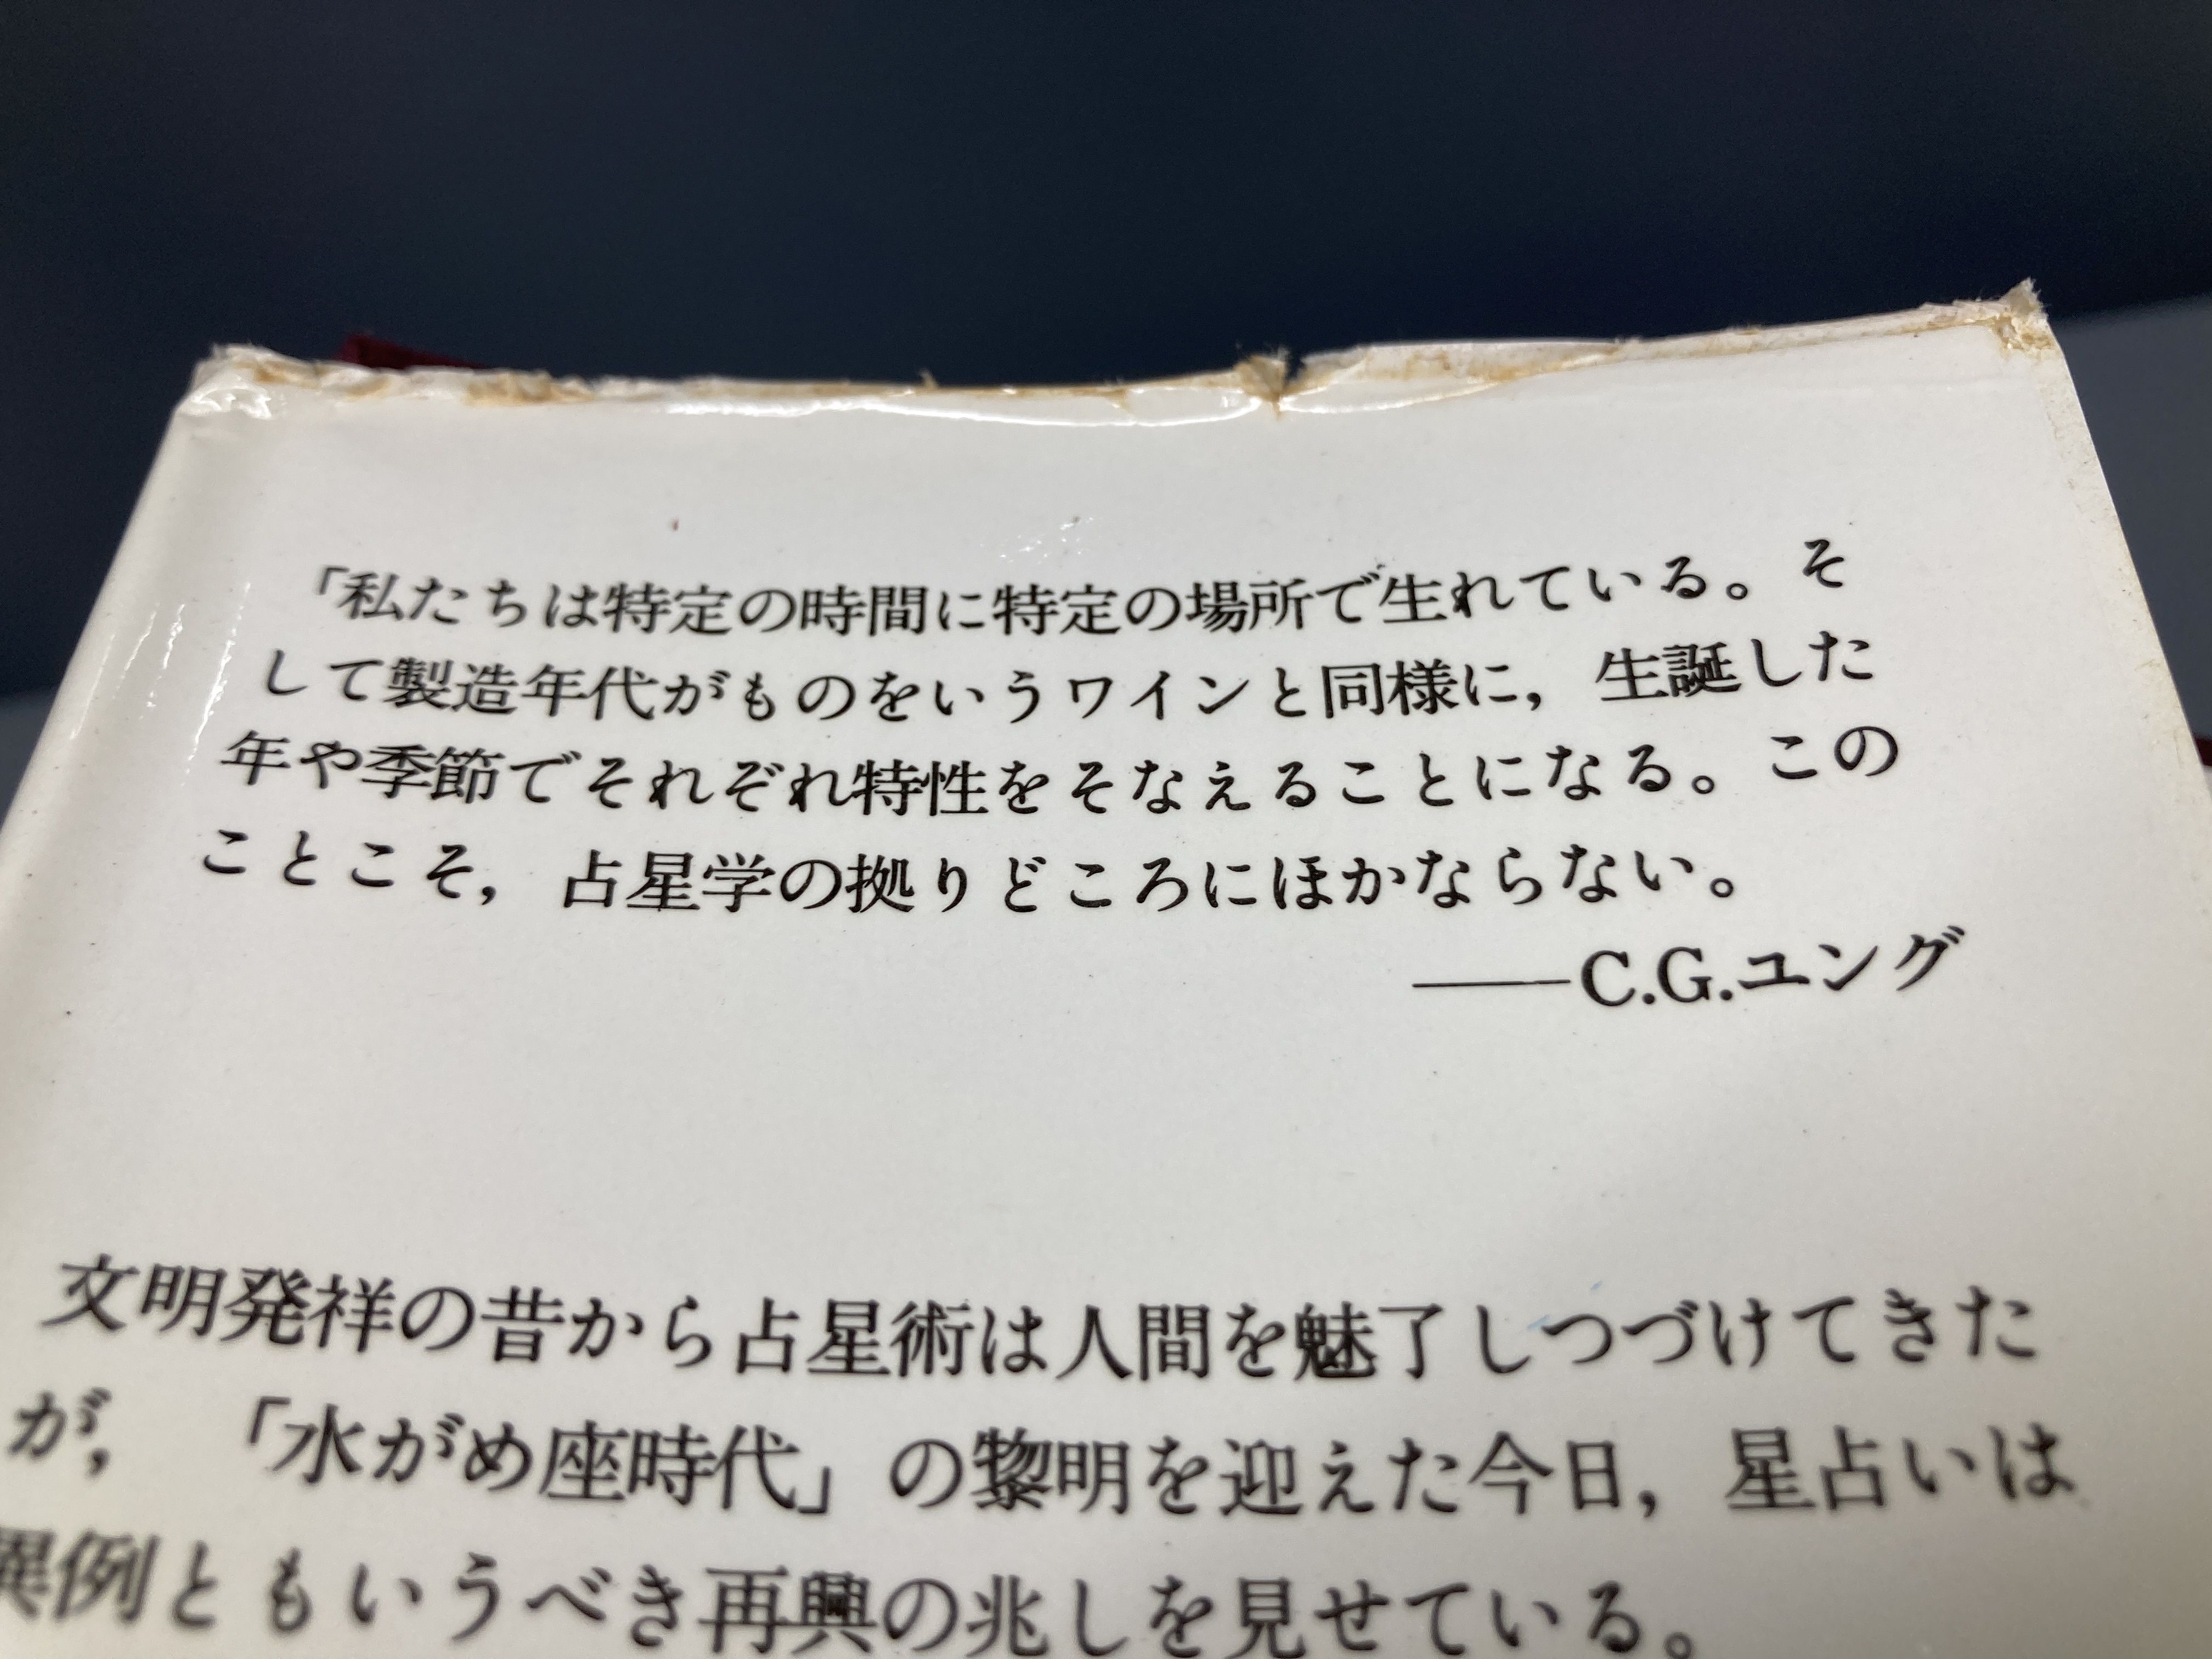 「私たちは特定の時間に特定の場所で生れている。そ
して製造年代がものをいうワインと同様に，生誕した
年や季節でそれぞれ特性をそなえることになる。この
ことこそ，占星学の拠りどころにほかならない。
――C.G.ユング
文明発祥の昔から占星術は人間を魅了しつづけてきた
が，「水がめ座時代」の黎明を迎えた今日，星占いは
異例ともいうべき再興の兆しを見せている。